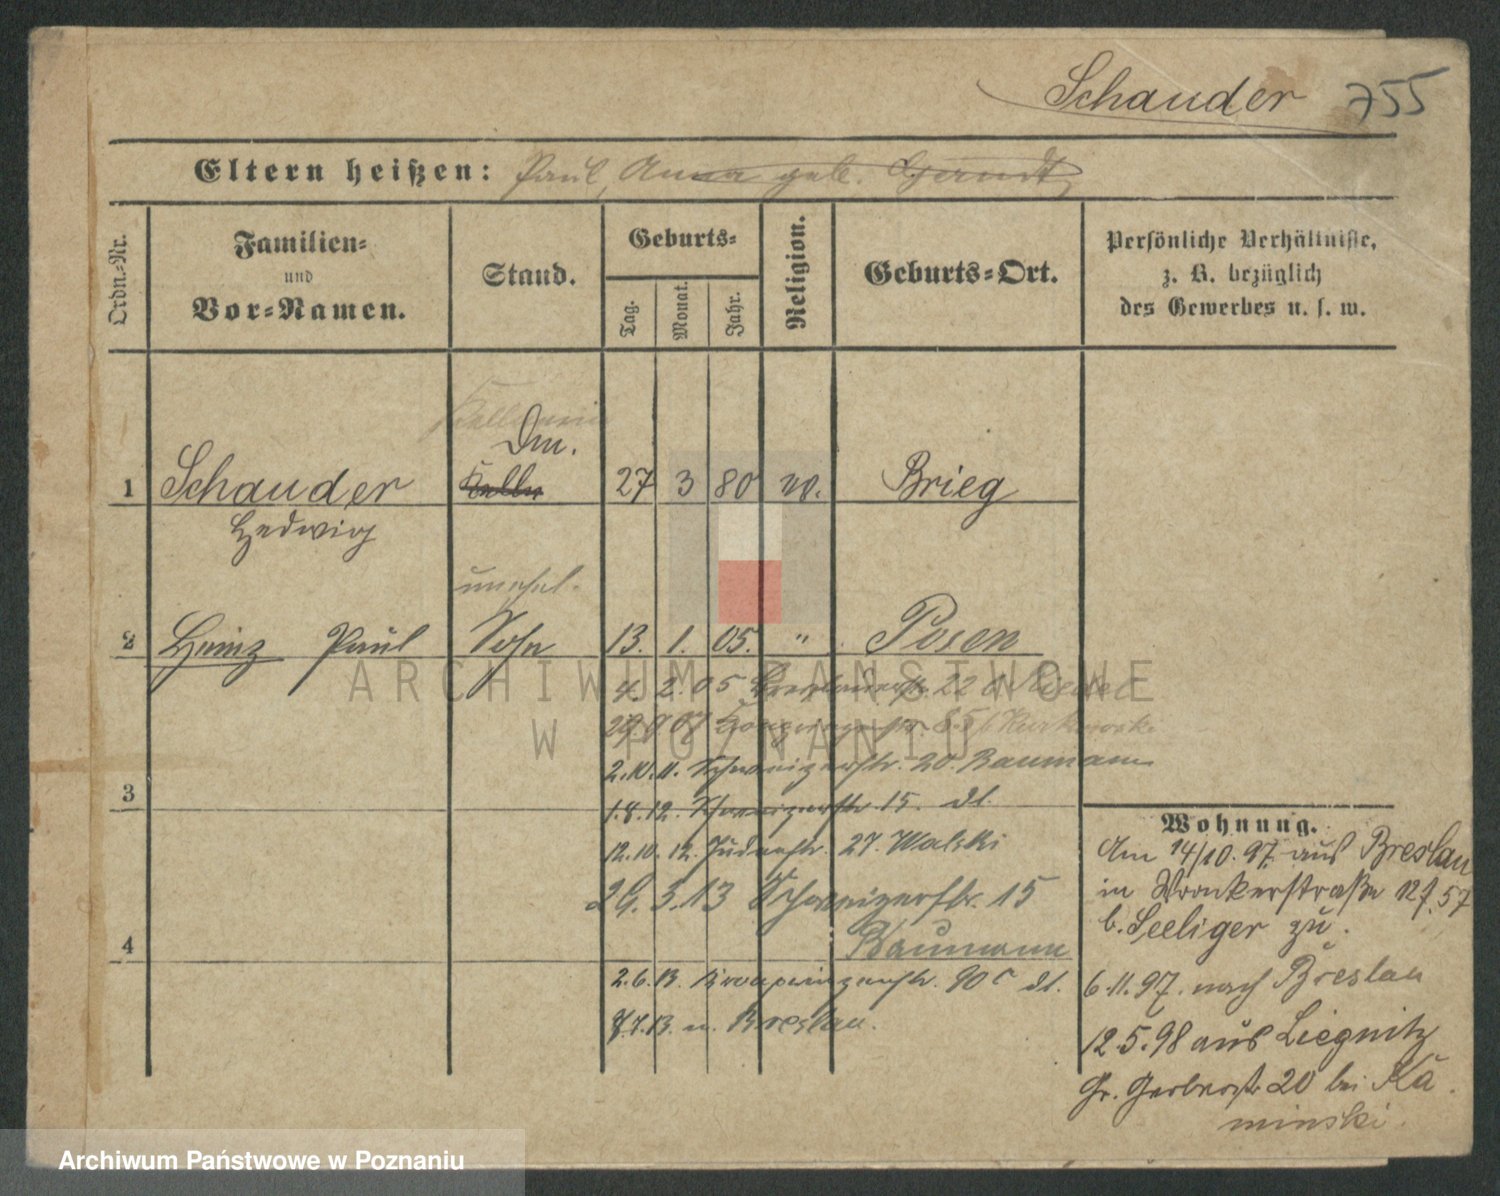 Schauder 755
Eltern heißen: Paul, Anna geb. Gerndt
Ordn.-Nr.
Familien-
und
Vor-Namen.
Stand.
Geburts-
Tag.
Monat.
Jahr.
Religion.
Geburts-Ort.
Persönliche Verhältnisse,
z. B. bezüglich
des Gewerbes u. s. w.
Kellnerin
Dm.
1 Schauder 27 3 80 Brieg
Hedwig
unehel.
2 Heinz Paul Sohn 13. 1. 05. " Posen
4. 2. 05 22
2. 10. 11. 20. Baumann
3
1. 8. 12. 15. dl.
12. 10. 12. Judenstr. 27. Walski
26. 3. 13 15
Baumann
4
2. 6. 13. 90c dl.
8.7.13. n. Breslau.
Wohnung.
Am 14/10. 97. aus Breslau
in Wronkerstraße
b. Seeliger zu.
6. 11. 97. nach Breslau
12. 5. 98 aus Liegnitz
Gr. Gerberstr 20 bei Ka
minski.
ARCHIWUM PAŃSTWOWE
W POZNANIU
Archiwum Państwowe w Poznaniu